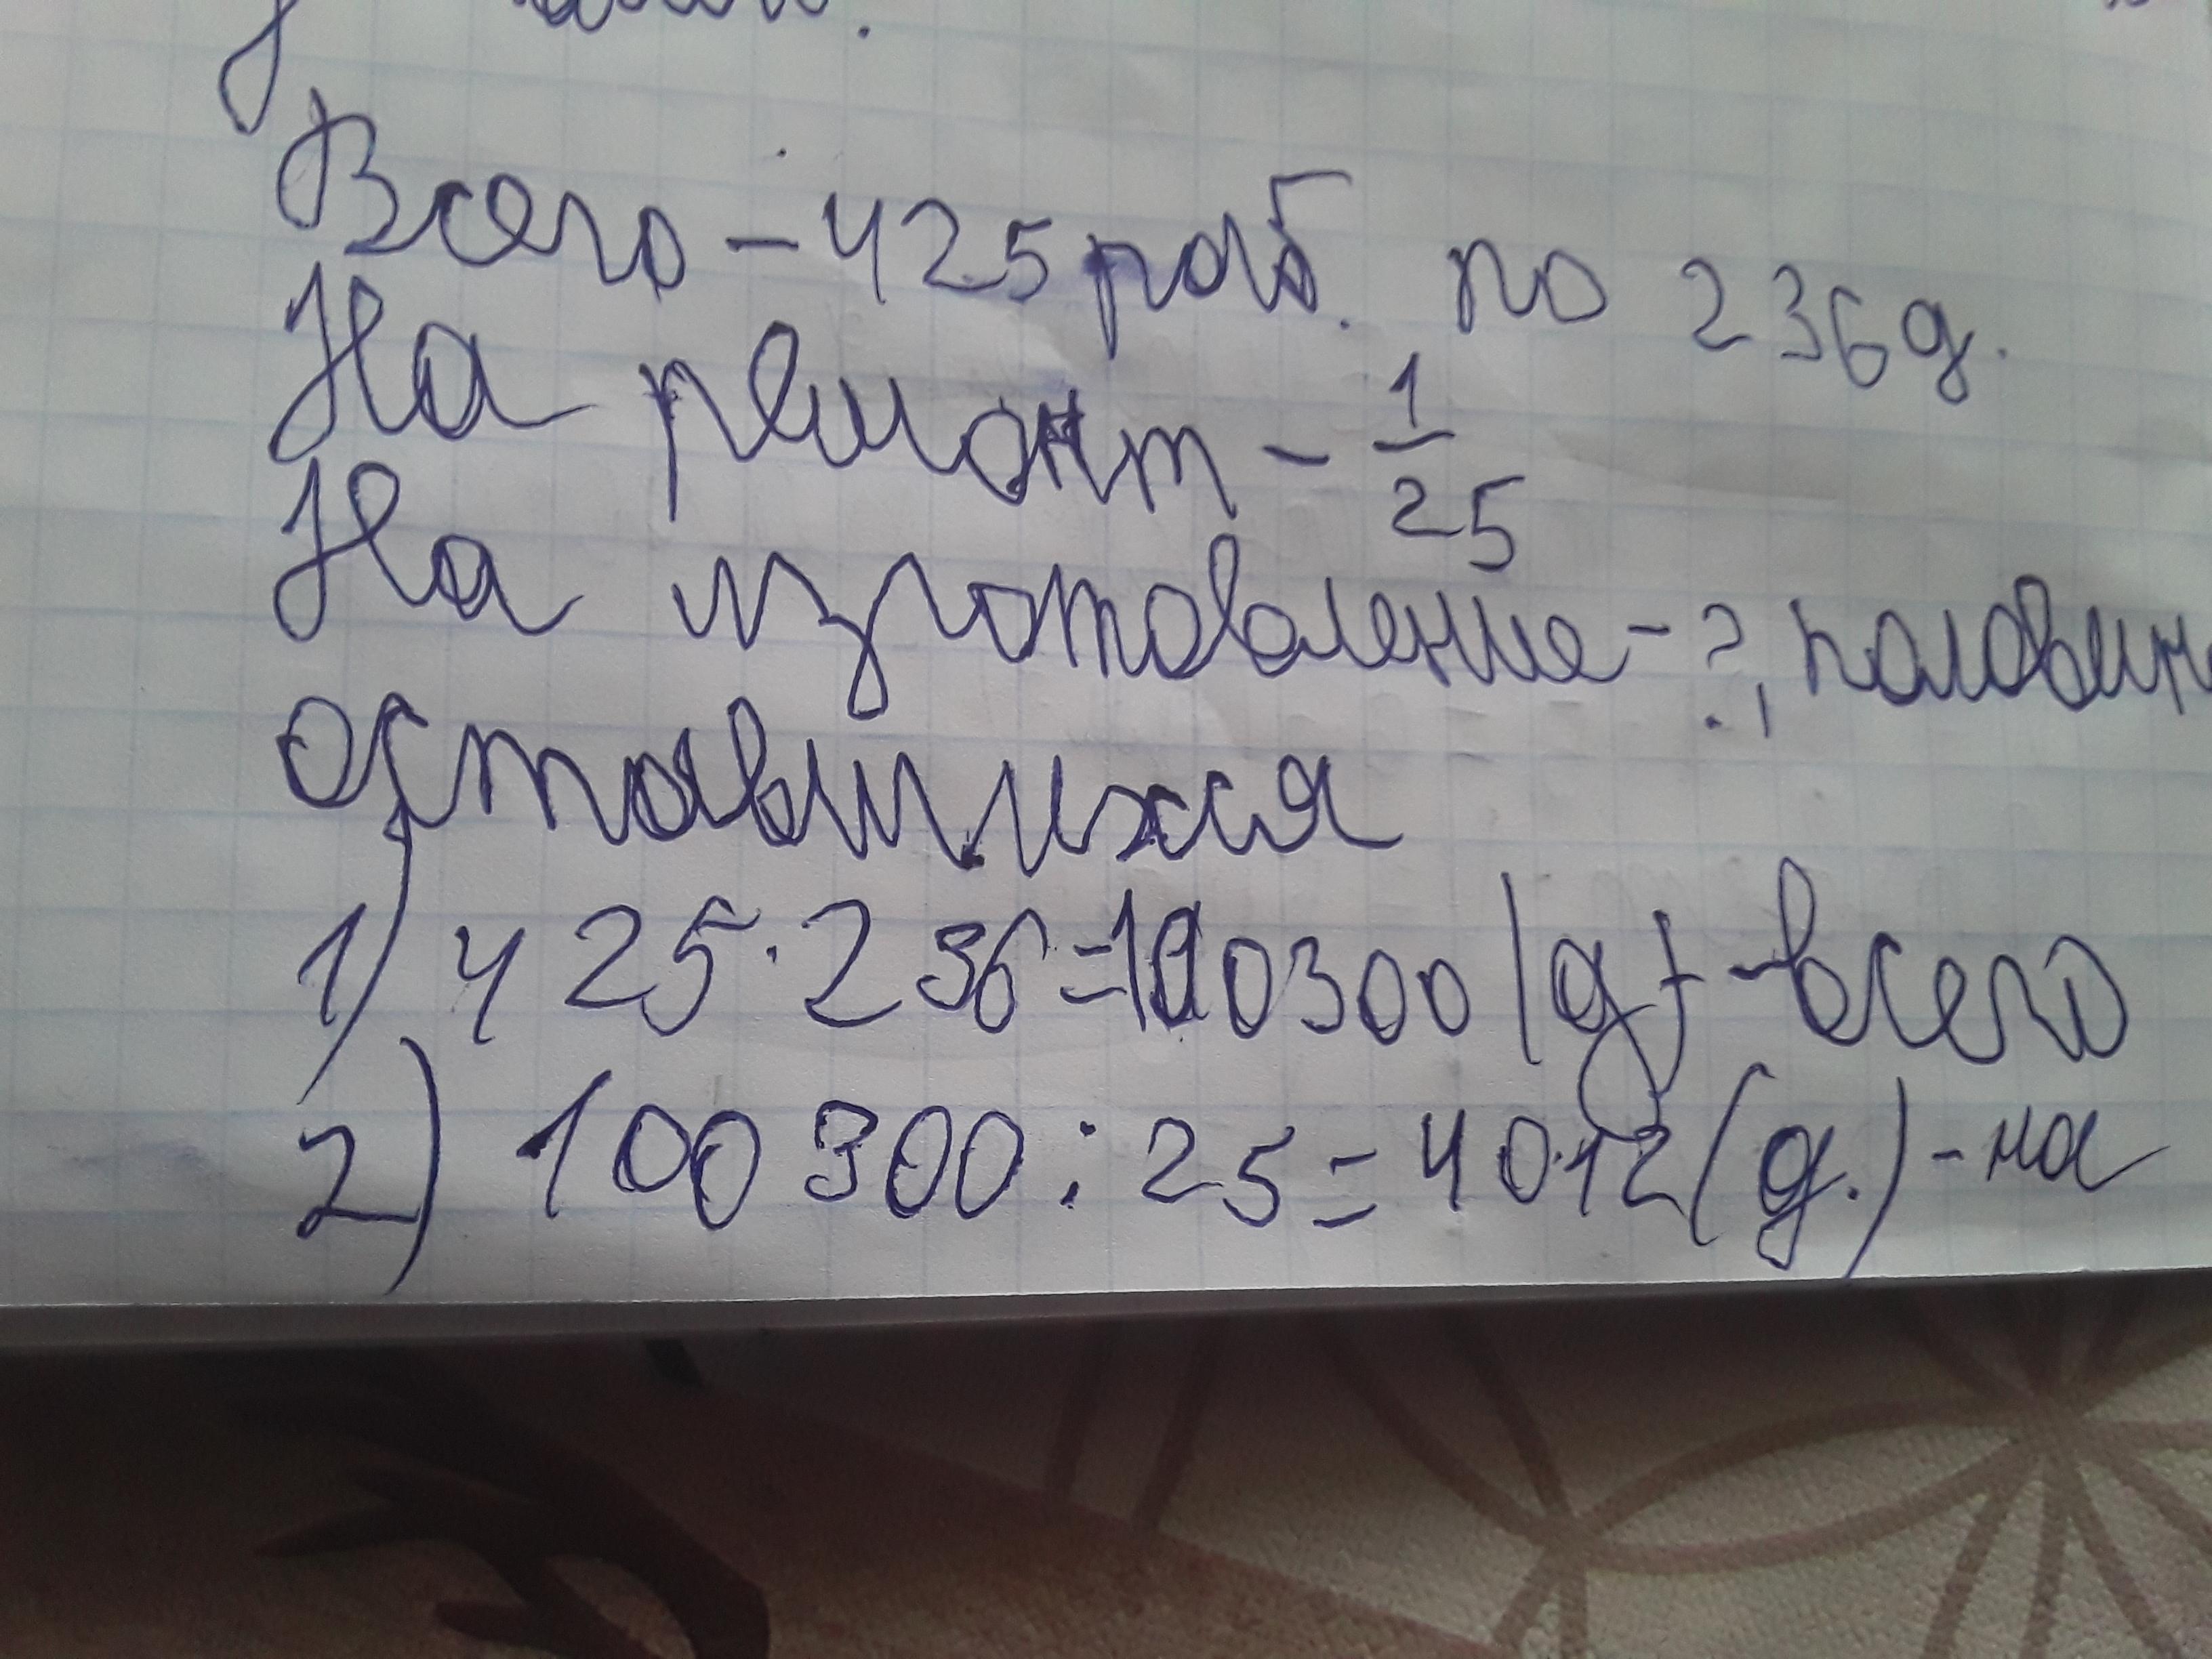 Всего - 425 раб. по 236 д.
На ремонт - 1/25
На изготовление - ?, половин
оставшихся
1) 425·236=100300 (д) - всего
2) 100300:25=4012 (д.) - на